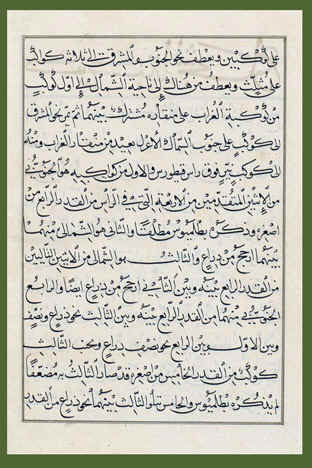 على كوكبين ويعطف نحو الجنوب والمشرق الى ثلثة كواكب
على مثلث ويعطف من هناك الى ناحية الشمال الى اول كواكب
من كوكبة الغراب على منقاره مشترك بينهما ثم تمر نحو المشرق
الى كوكب على جنوب السماك الاعزل بعيد من منقار الغراب ومنه
الى كوكبين فوق راس قنطورس والاول من كواكبه هو الجنوبي
من الاثنين المتقدمين من الاربعة التي في الراس من القدر الرابع من
اصغره وذكره بطلميوس مطلقا والثاني هو الشمالي منهما
بينهما ارجح من ذراع والثالث هو الشمالي من الاثنين التاليين
من القدر الرابع بينه وبين الثاني ارجح من ذراع ايضا والرابع
الجنوبي منهما من القدر الرابع بينه وبين الثالث نحو ذراع ونصف
وبين الاول وبين الرابع نحو نصف ذراع وبجنب الثالث
كوكب من القدر الخامس من اصغره قد صار الثالث به مضعفا
لم يذكره بطلميوس والخامس يتلو الثالث بينهما نحو ذراع من القدر